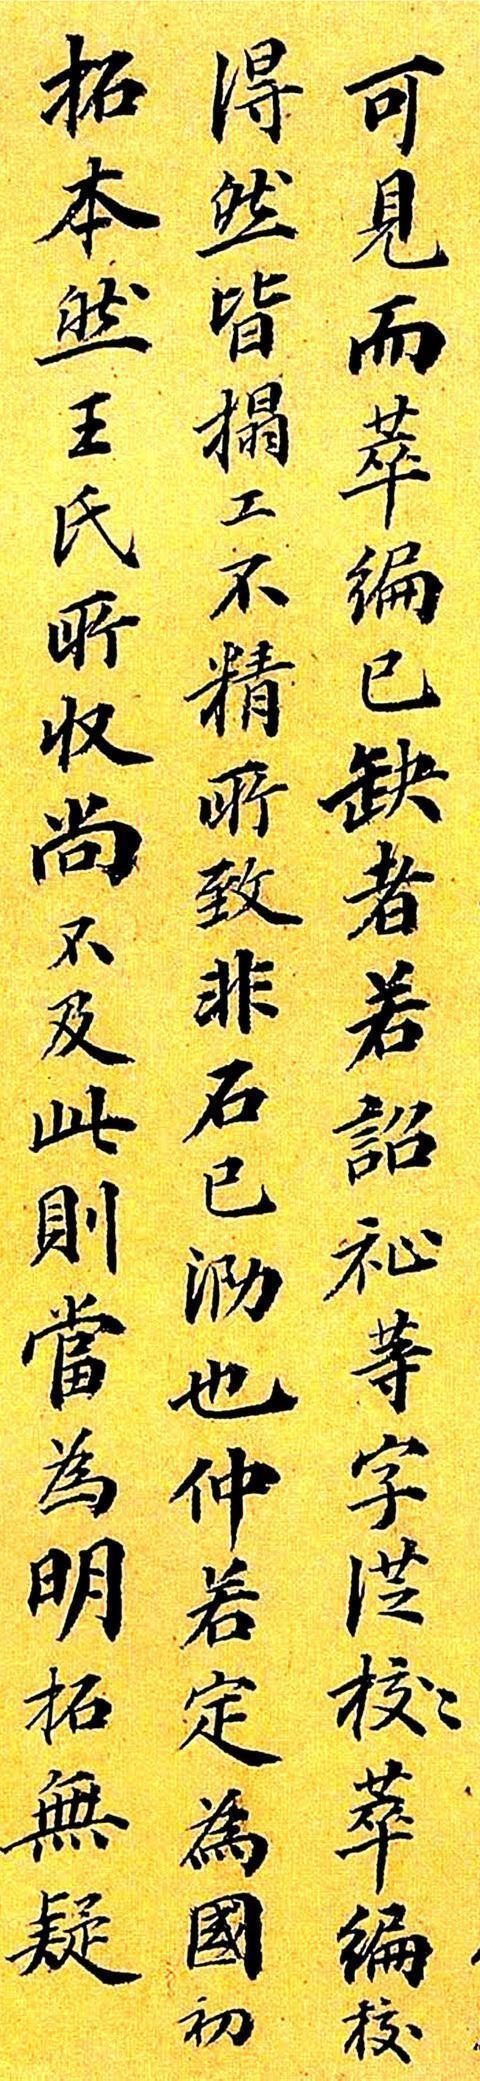 可見而萃編已缺者若詔祉等字從校萃編校
得然皆搨工不精所致非石已泐也仲若定為國初
拓本然王氏所收尚不及此則當為明拓無疑